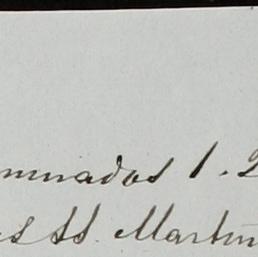 minados 1. 2
es SS. Martin